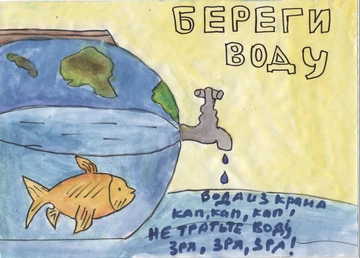 БЕРЕГИ
ВОДУ
ВОДА ИЗ КРАНА
КАП, КАП, КАП!
НЕ ТРАТЬТЕ ВОДУ
ЗРЯ, ЗРЯ, ЗРЯ!